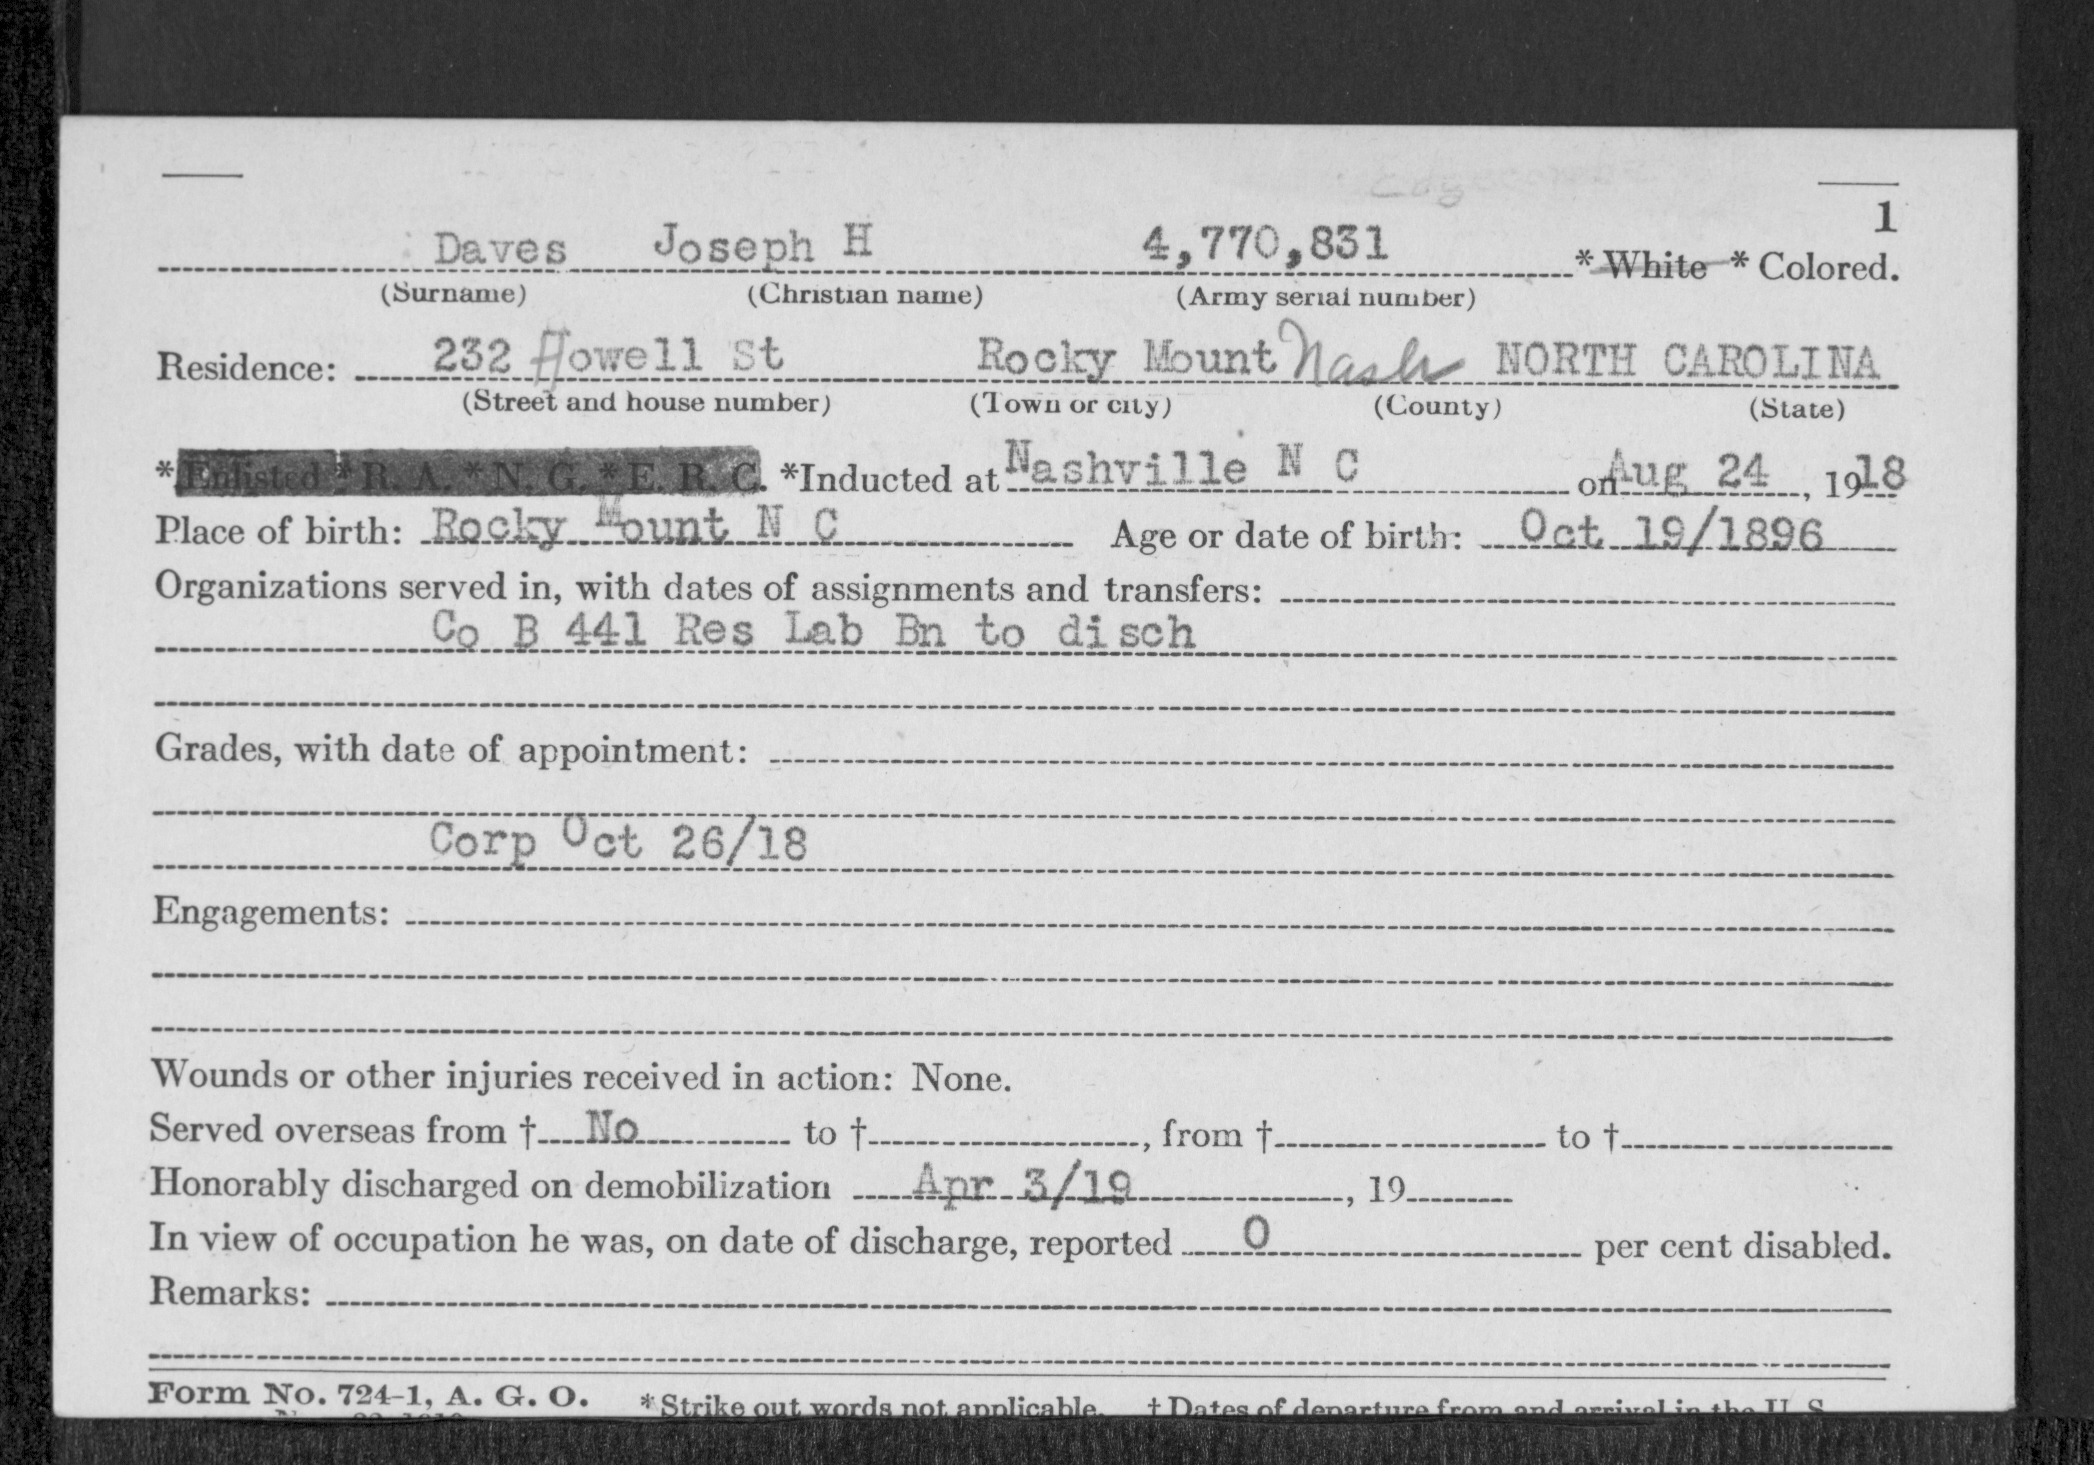 1
Daves Joseph H 4,770,831 * White * Colored.
(Surname) (Christian name) (Army serial number)
Residence: 232 Howell St Rocky Mount Nash NORTH CAROLINA
(Street and house number) (Town or city) (County) (State)
* Enlisted * R. A. * N. G. * E. R. C. *Inducted at Nashville N C on Aug 24, 1918
Place of birth: Rocky Mount N C Age or date of birth: Oct 19/1896
Organizations served in, with dates of assignments and transfers:
Co B 441 Res Lab Bn to disch
Grades, with date of appointment:
Corp Oct 26/18
Engagements:
Wounds or other injuries received in action: None.
Served overseas from † No to †, from † to †
Honorably discharged on demobilization Apr 3/19, 19
In view of occupation he was, on date of discharge, reported 0 per cent disabled.
Remarks:
Form No. 724-1, A. G. O. *Strike out words not applicable. † Dates of departure from and arrival in the U. S.